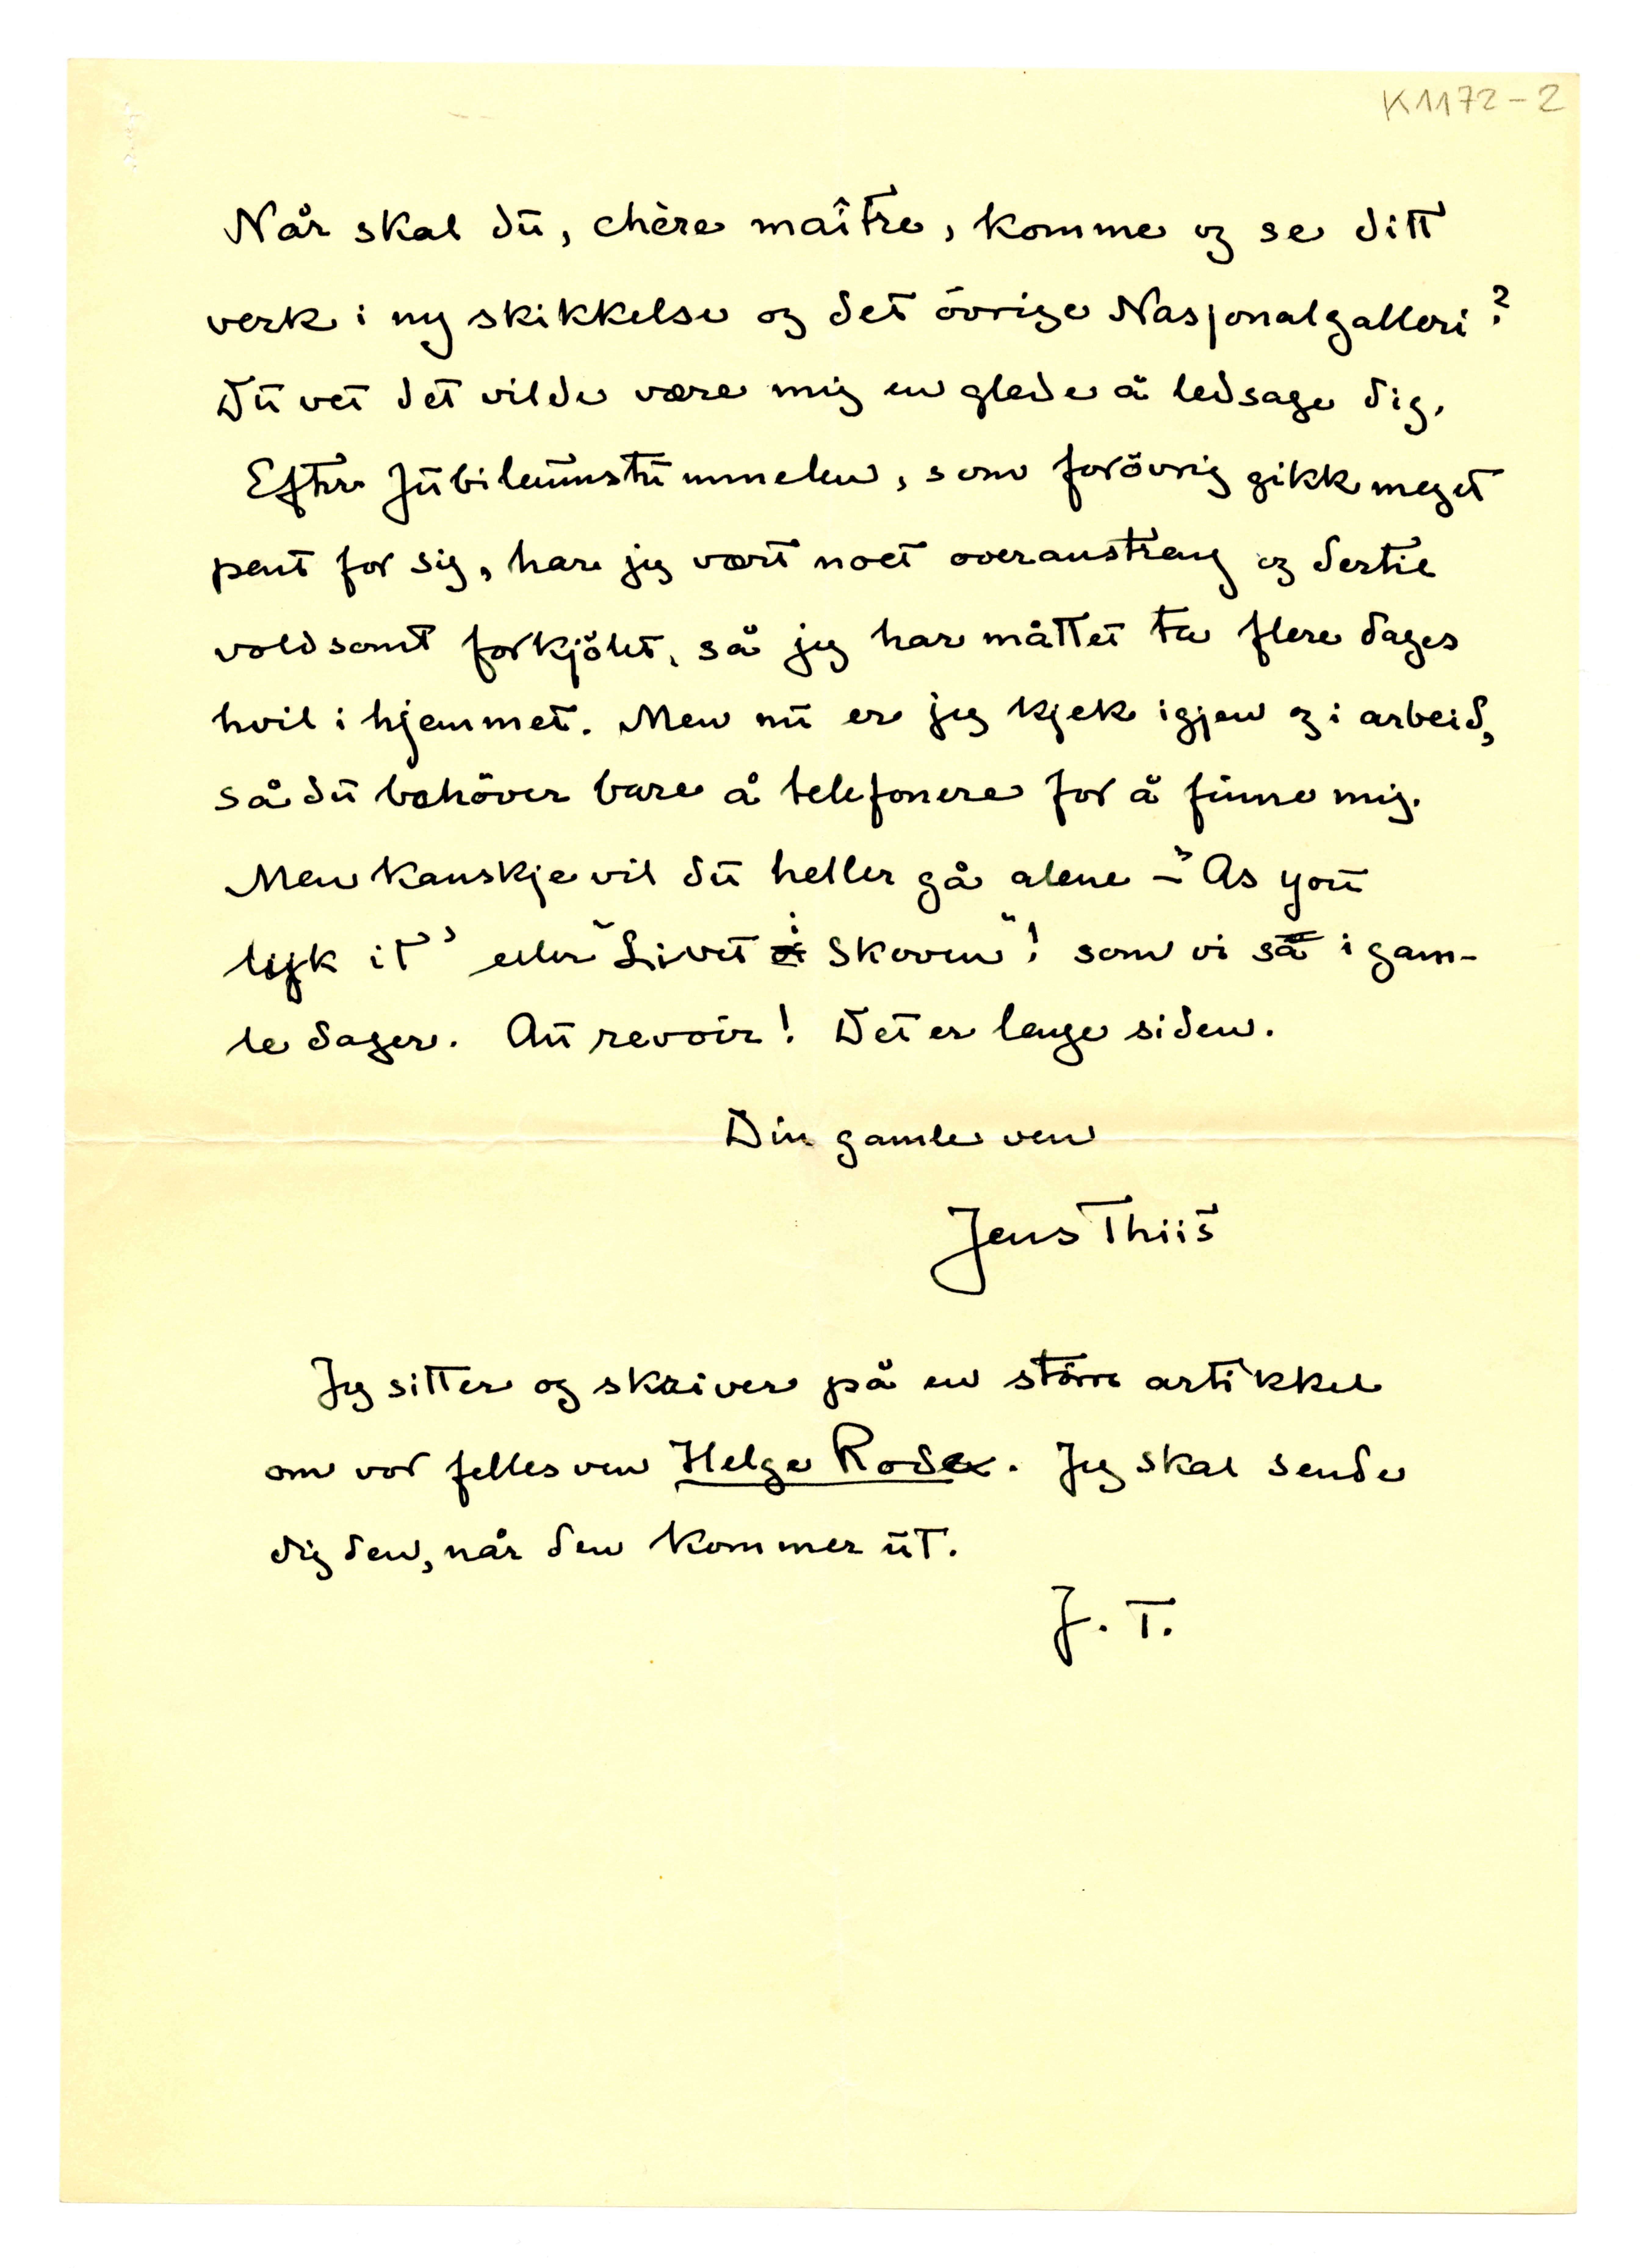 K1172-2
Når skal du, chère maître, komme og se ditt
verk i ny skikkelse og det övrige Nasjonalgalleri?
Du vet det vilde være mig en glede å ledsage dig.
Efter Jubileumstummelen, som forövrig gikk meget
pent for sig, har jeg vært noet overanstreng og dertil
voldsomt forkjölet, så jeg har måttet ta flere dages
hvil i hjemmet. Men nu er jeg kjek igjen og i arbeid,
så du behöver bare å telefonere for å finne mig.
Men kanskje vil du heller gå alene – "As you
lyk it" eller "Livet i Skoven"! som vi så i gam-
le dager. Au revoir! Det er lenge siden.
Din gamle ven
Jens Thiis
Jeg sitter og skriver på en större artikkel
om vor felles ven Helge Rode. Jeg skal sende
dig den, når den kommer ut.
J. T.